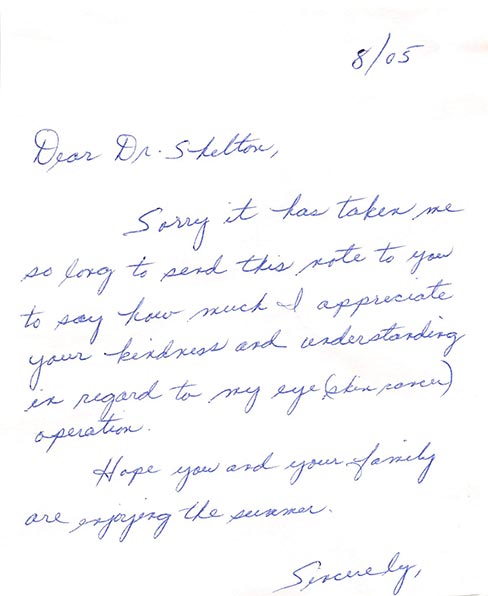 8/05
Dear Dr. Shelton,
Sorry it has taken me
so long to send this note to you
to say how much I appreciate
your kindness and understanding
in regard to my eye (skin cancer)
operation.
Hope you and your family
are enjoying the summer.
Sincerely,